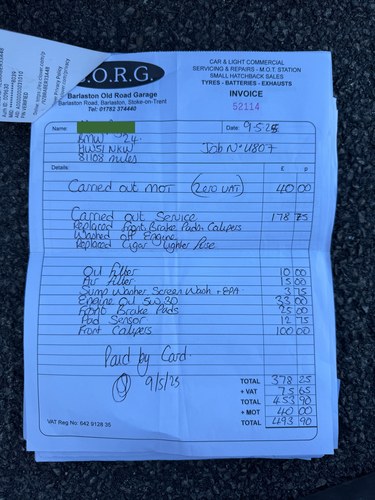 .O.R.G.
Barlaston Old Road Garage
Barlaston Road, Barlaston, Stoke-on-Trent
Tel: 01782 374440
CAR & LIGHT COMMERCIAL
SERVICING & REPAIRS - M.O.T. STATION
SMALL HATCHBACK SALES
TYRES - BATTERIES - EXHAUSTS
INVOICE
52114
Name:
Date: 9-5-25
BMW
HW51 NKW
Job No 4807
81108 miles
Details: £ p
Carried out MOT (Zero VAT) 40 00
Carried out Service 178 75
Replaced Front Brake Pads, Calipers
Washed off Engine
Replaced Cigar Lighter Fuse
Oil Filter 10 00
Air Filter 15 00
Sump Washer Screen Wash + EPA 3 75
Engine Oil 5w30 33 00
Front Brake Pads 25 00
Pad Sensor 12 75
Front Calipers 100 00
Paid by Card.
9/5/25
TOTAL 378 25
+ VAT 75 65
TOTAL 453 90
+ MOT 40 00
TOTAL 493 90
VAT Reg No: 642 9128 35